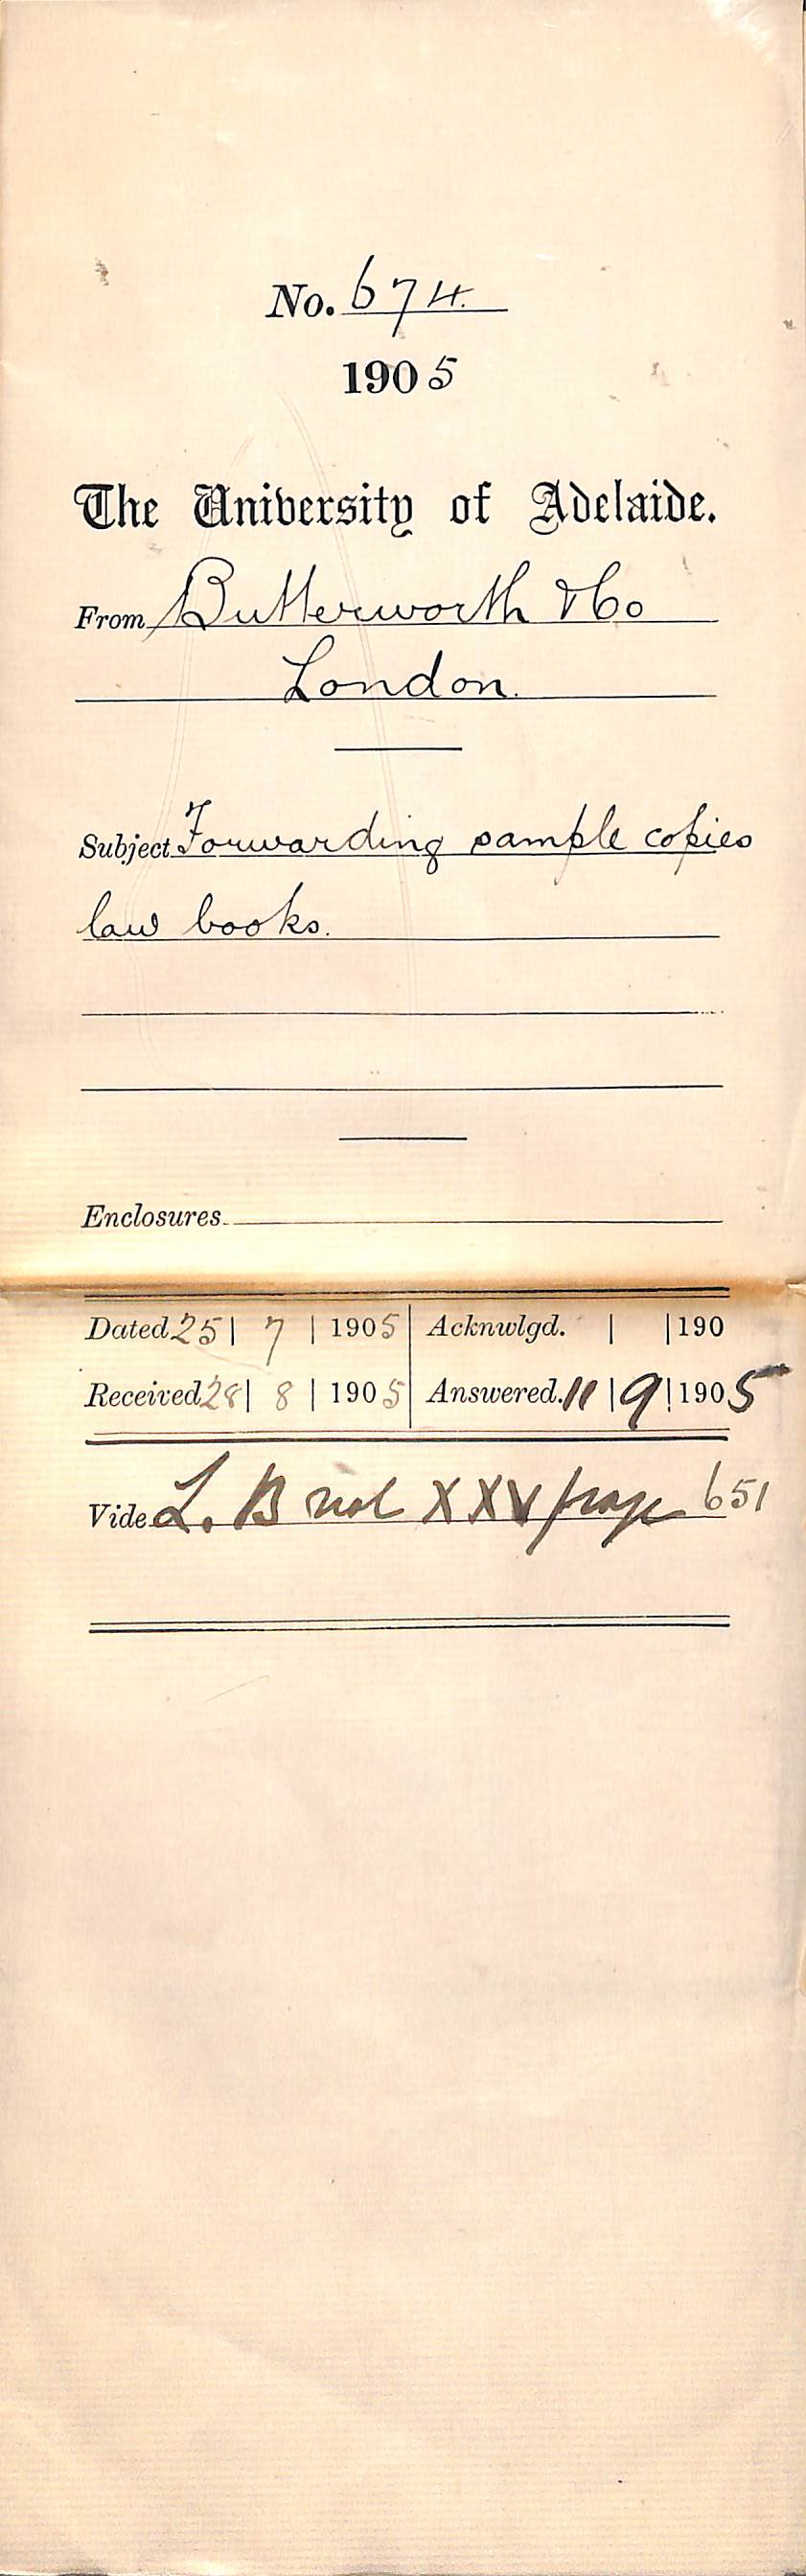 No. 674.
1905
The University of Adelaide.
From Butterworth & Co
London.
Subject Forwarding sample copies
law books.
Enclosures
Dated 25 | 7 | 1905 Acknwlgd. | | 190
Received 28 | 8 | 1905 Answered. 11 | 9 | 1905
Vide L. B vol XXV page 651